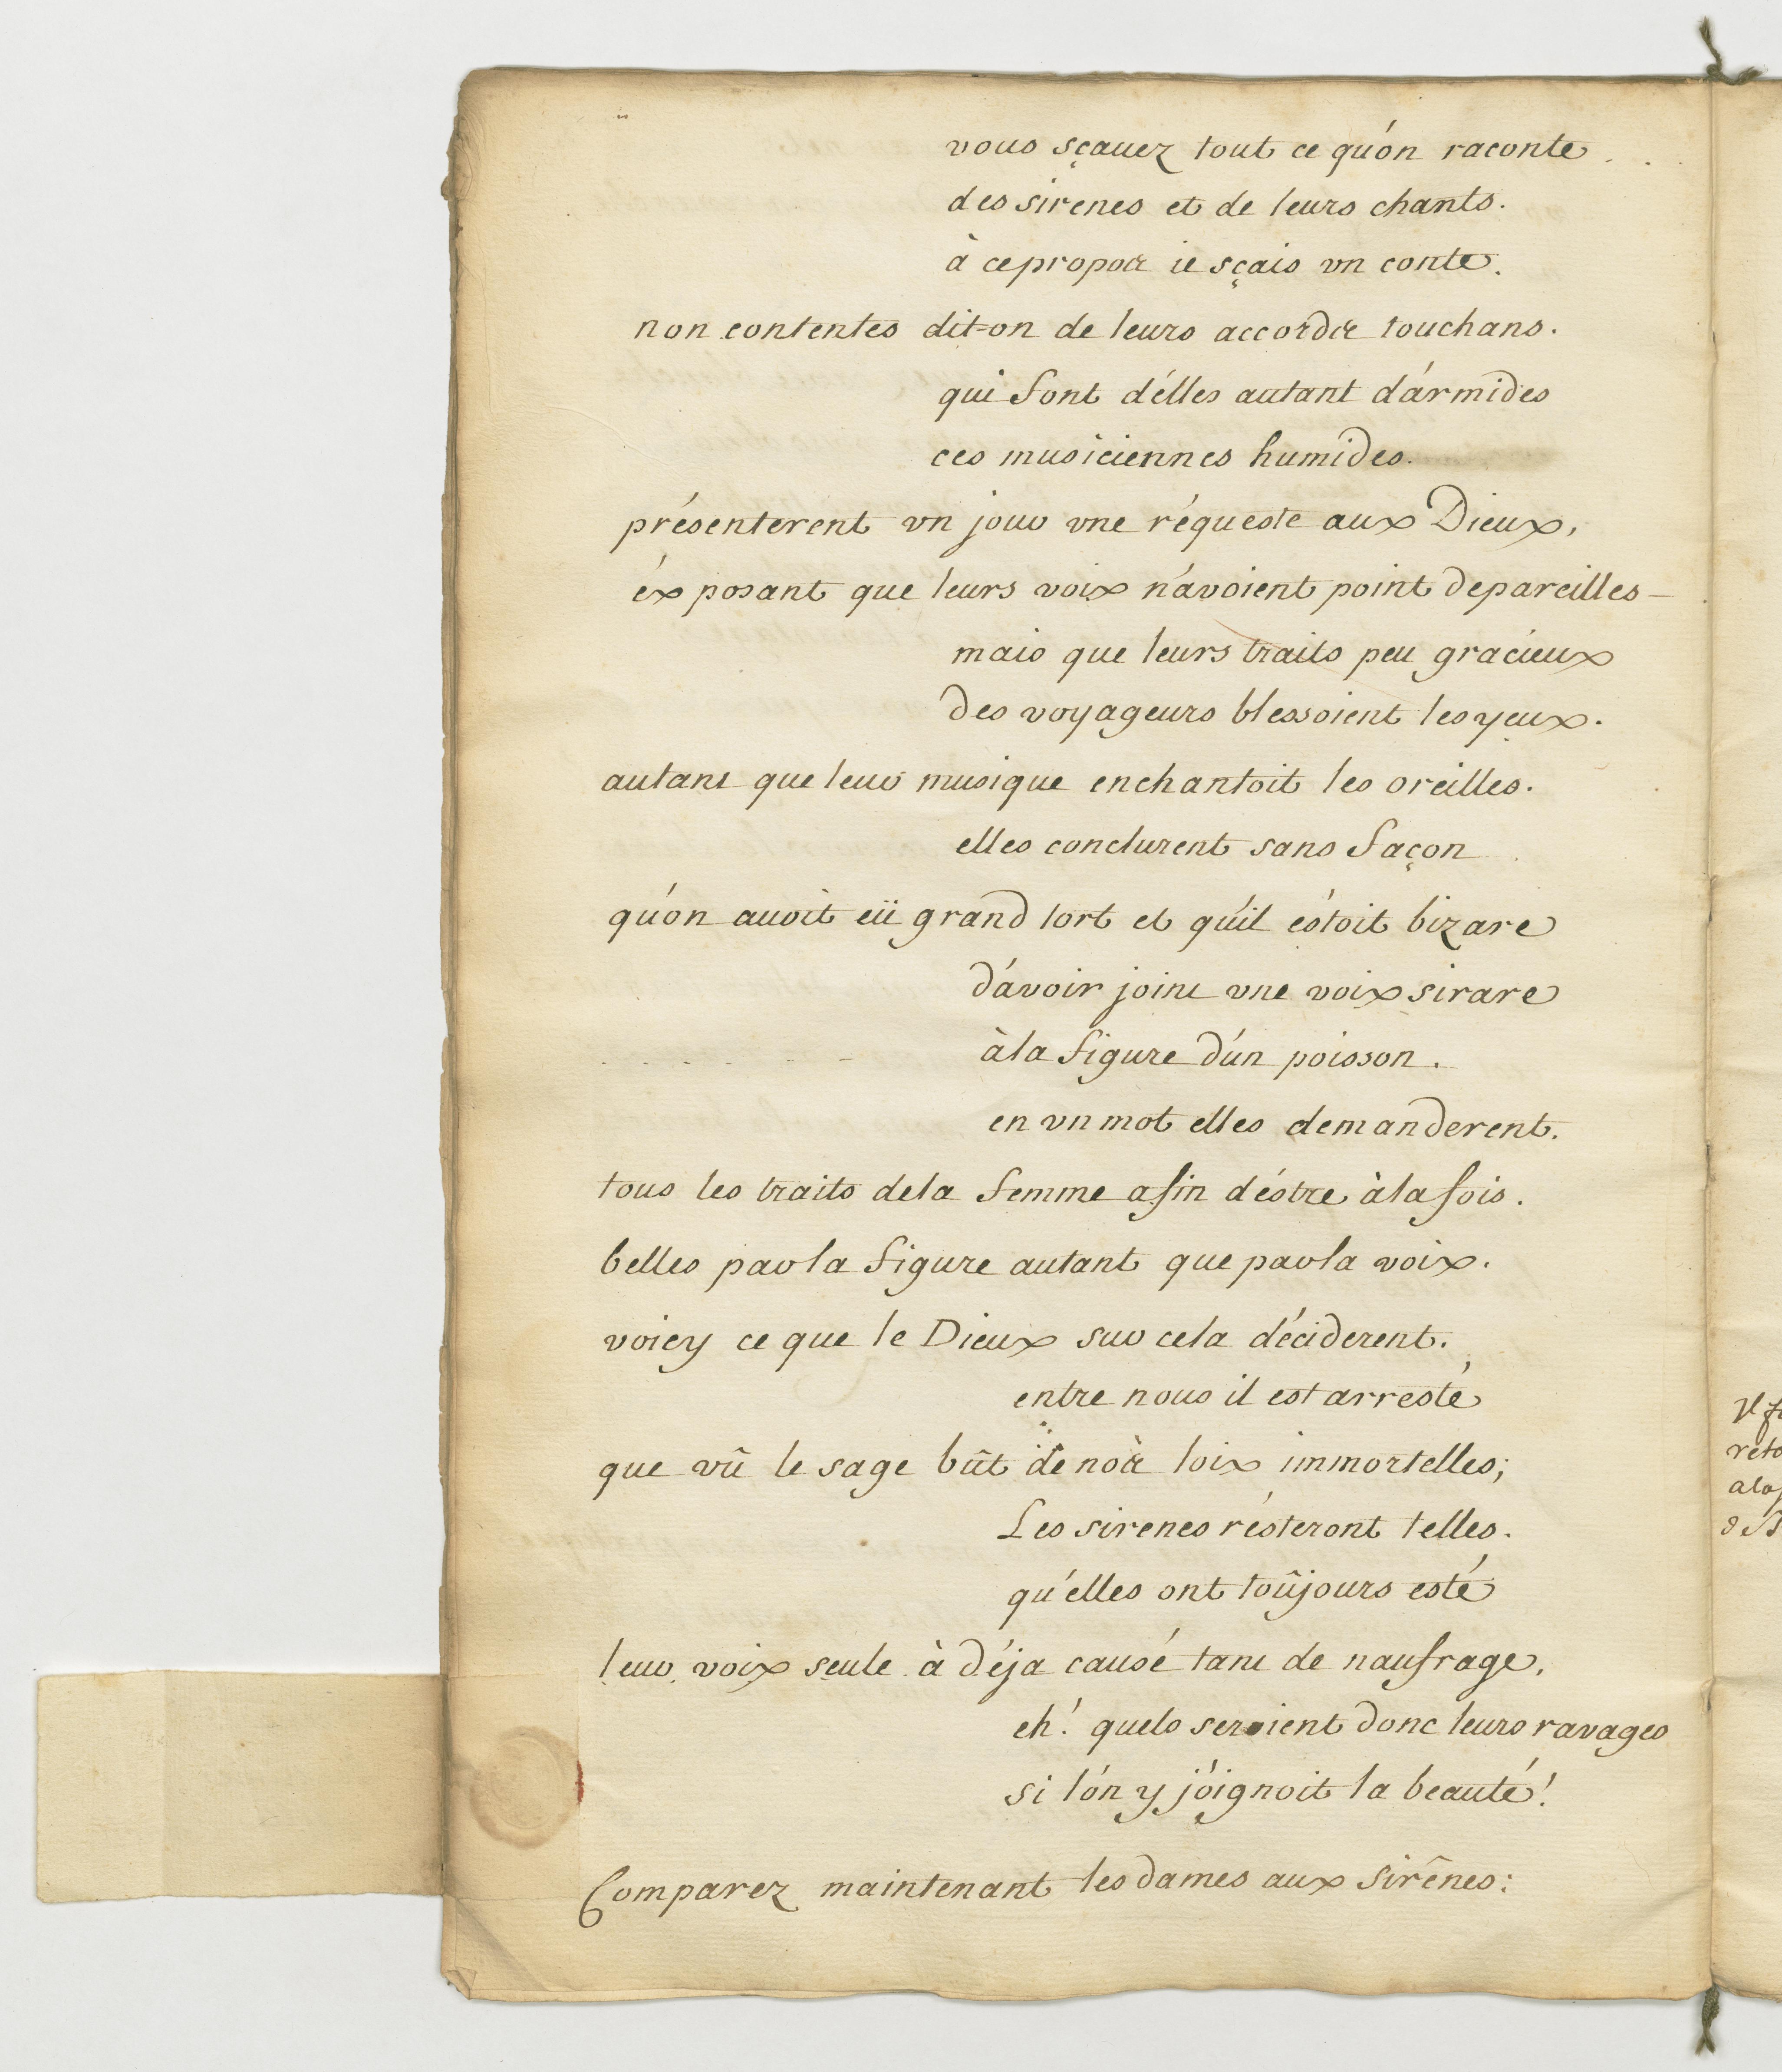 vous sçauez tout ce qu'on raconte
des sirenes et de leurs chants.
à ce propos ie sçais vn conte.
non contentes dit-on de leurs accords touchans.
qui font d'élles autant d'ármides
ces musiciennes humides.
présenterent vn jour vne réqueste aux Dieux,
éxposant que leurs voix n'avoient point de pareilles
mais que leurs traits peu gracieux
des voyageurs blessoient les yeux.
autant que leur musique enchantoit les oreilles.
elles conclurent sans façon
qu'on auoit eü grand tort et qu'il éstoit bizare
d'ávoir joint vne voix si rare
à la figure d'un poisson.
en vn mot elles demanderent.
tous les traits de la femme afin d'éstre à la fois.
belles par la figure autant que par la voix.
voicy ce que le Dieux sur cela déciderent.
entre nous il est arresté
que vû le sage bût de nos loix immortelles;
Les sirenes résteront telles.
qu'elles ont toûjours esté
leur voix seule à déja causé tant de naufrage,
eh! quels seroient donc leurs ravages
si l'ón y jóignoit la beauté!
Comparez maintenant les dames aux sirênes: